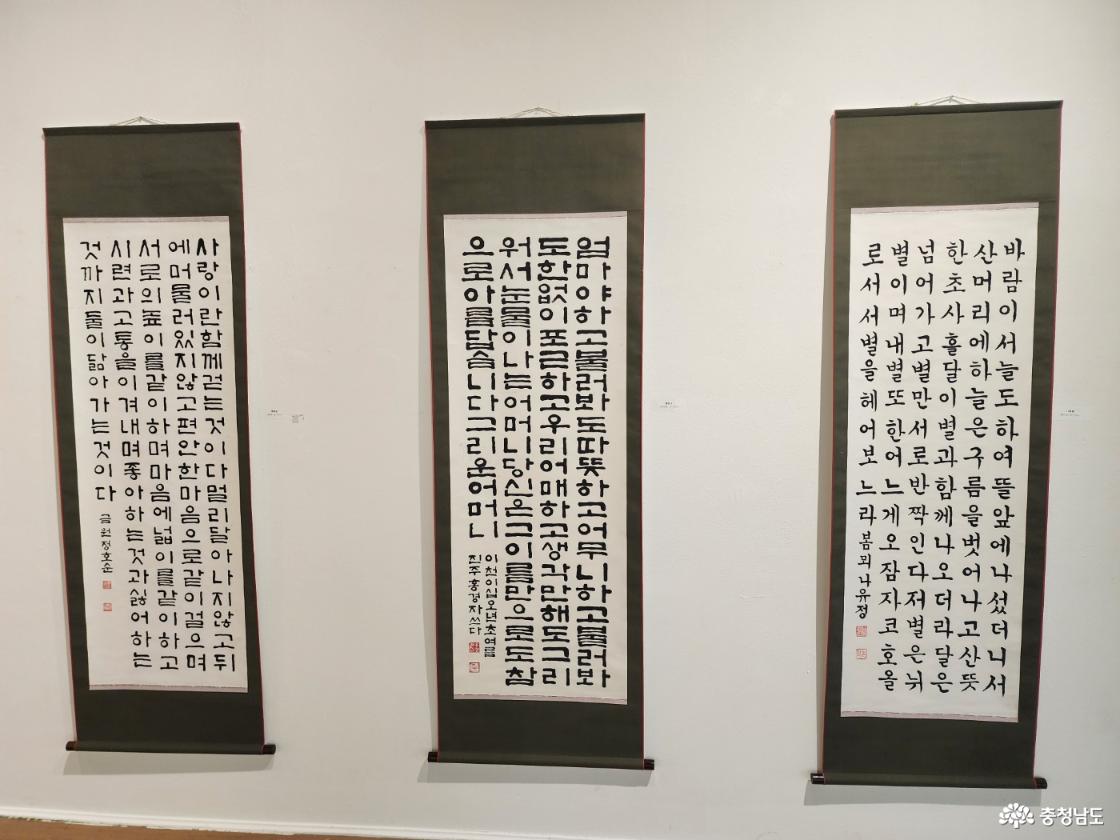 사랑이란함께걷는것이다멀리달아나지않고뒤
에머물러있지않고편안한마음으로같이걸으며
서로의높이를같이하며마음에넓이를같이하고
시련과고통을이겨내며좋아하는것과싫어하는
것까지둘이닮아가는것이다 금원정호순
엄마야하고불러봐도따뜻하고어무니하고불러봐
도한없이포근하고우리어매하고생각만해도그리
워서눈물이나는어머니당신은그이름만으로도참
으로아름답습니다그리운어머니
이천이십오년초여름
진주홍경자쓰다
바람이서늘도하여뜰앞에나섰더니서
산머리에하늘은구름을벗어나고산뜻
한초사흘달이별과함께나오더라달은
넘어가고별만서로반짝인다저별은뉘
별이며내별또한어느게오잠자코호올
로서서별을헤어보느라 봄뫼나유정
충청남도